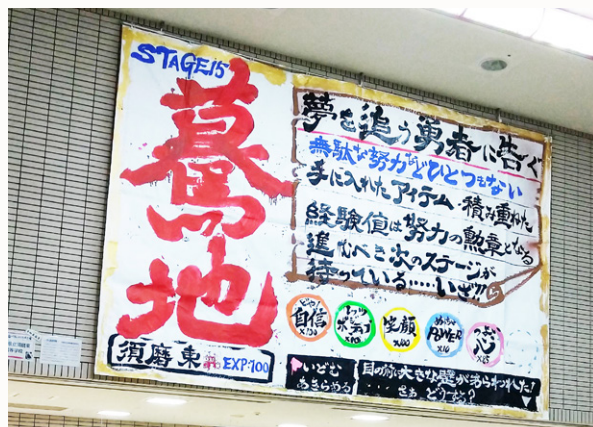 STAGE15
驀地
須磨東 EXP:100
夢を追う勇者に告ぐ
無駄な努力などひとつもない
手に入れたアイテム・積み重ねた
経験値は努力の勲章となる
進むべき次のステージが
待っている・・・・・いざ!!!
どや!
自信
笑顔
POWER
心
いどむ
あきらめる
目の前に大きな壁があらわれた!
さぁ どうする?